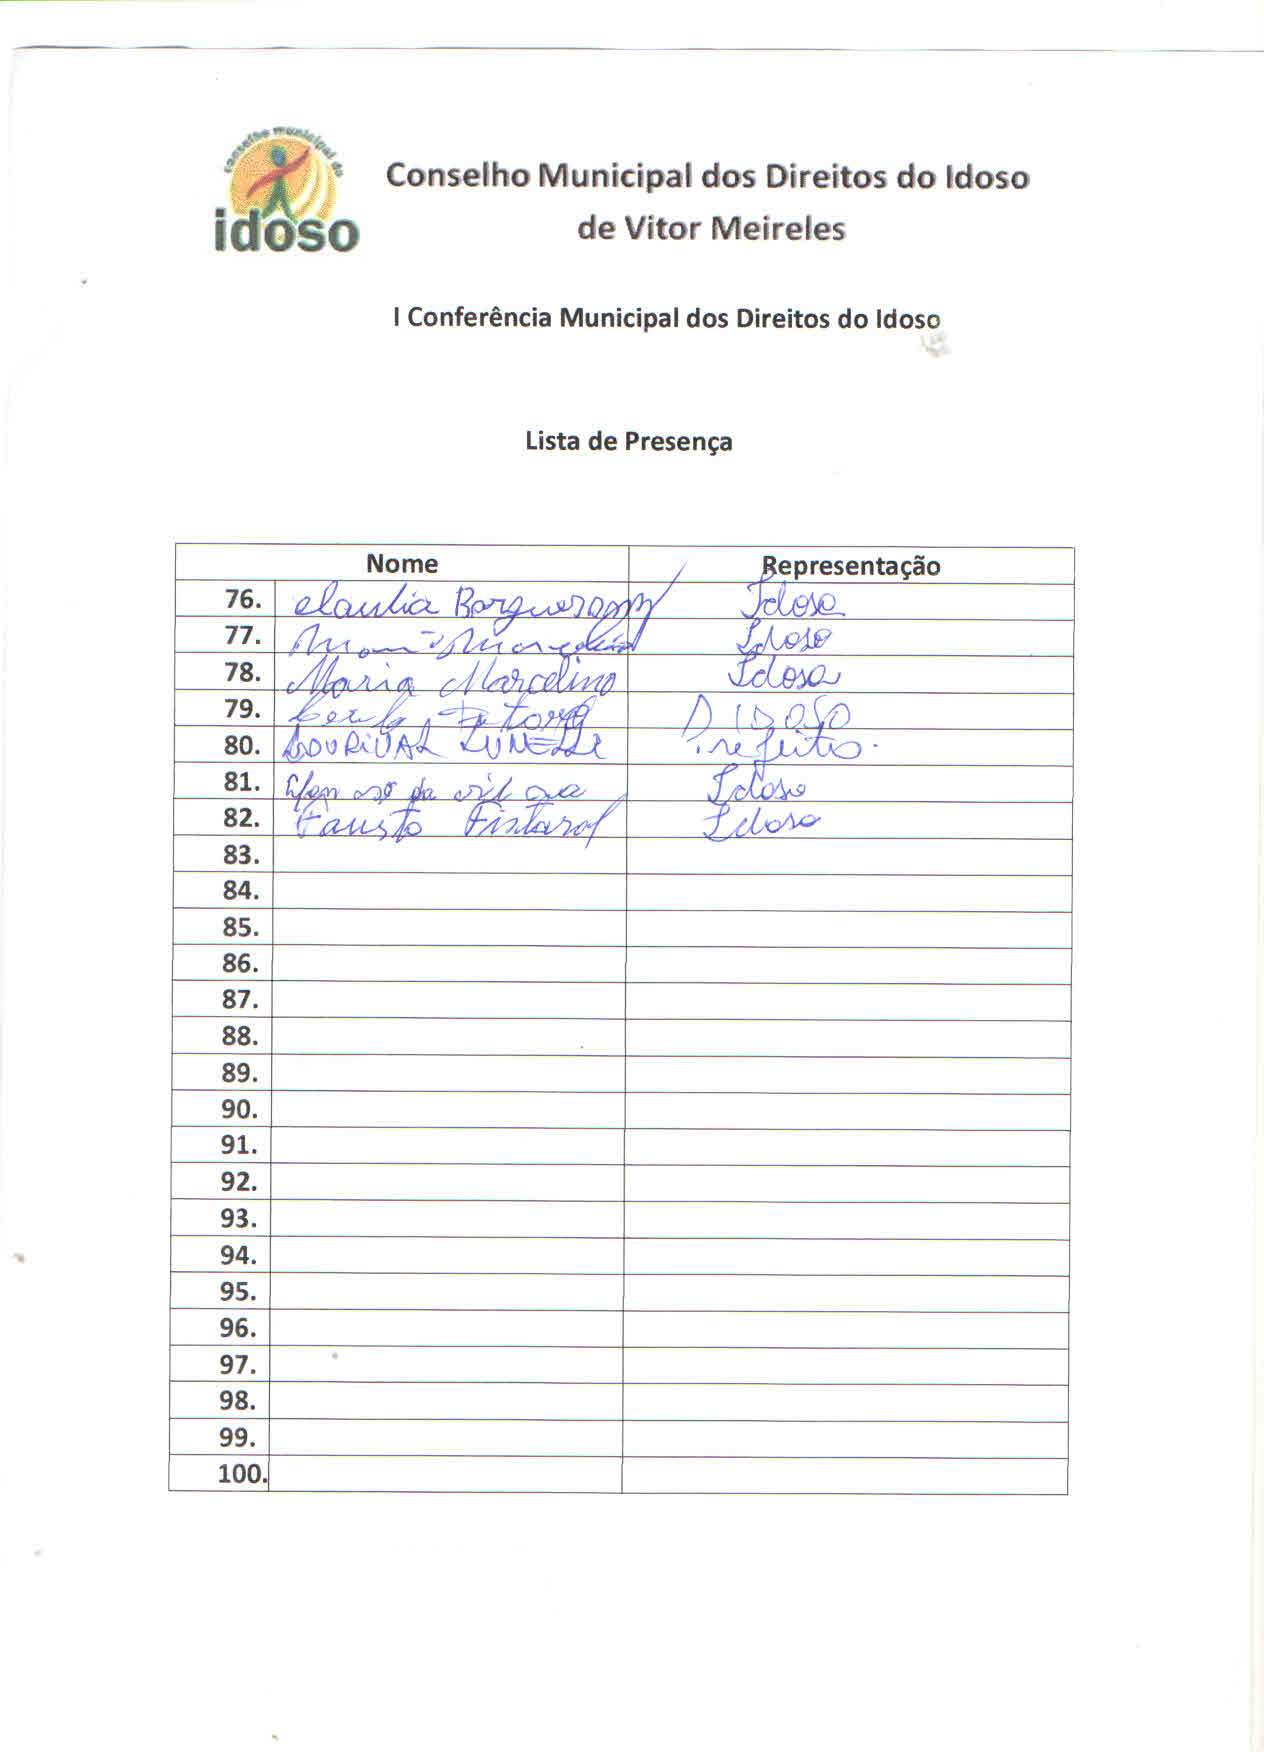 conselho municipal do
idoso
Conselho Municipal dos Direitos do Idoso
de Vitor Meireles
I Conferência Municipal dos Direitos do Idoso
Lista de Presença
Nome Representação
76. Claudia Idosa
77. Idoso
78. Maria Marcelino Idosa
79. IDOSO
80. LOURIVAL LUNELLI Prefeito.
81. Idoso
82. Fausto Idoso
83.
84.
85.
86.
87.
88.
89.
90.
91.
92.
93.
94.
95.
96.
97.
98.
99.
100.